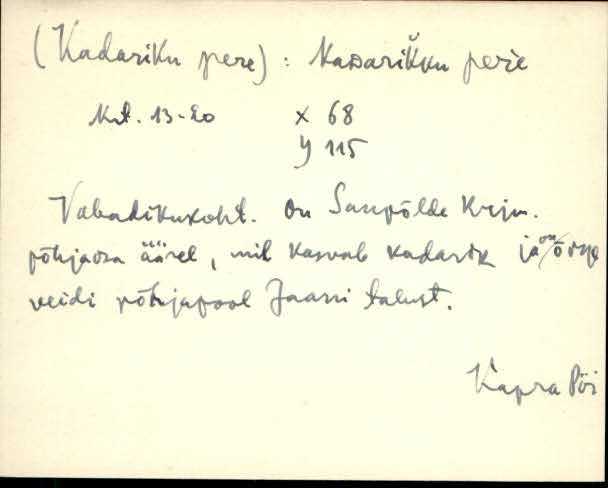 (Kadariku pere): kaᴅarik̆ku pere
Krt. 13-20 x 68
y 115
Vabadikukoht. On Saupõlde Krjm.
põhjaosa äärel, mil kasvab kadarik ja on
veidi põhjapool Jaani talust.
Kapra